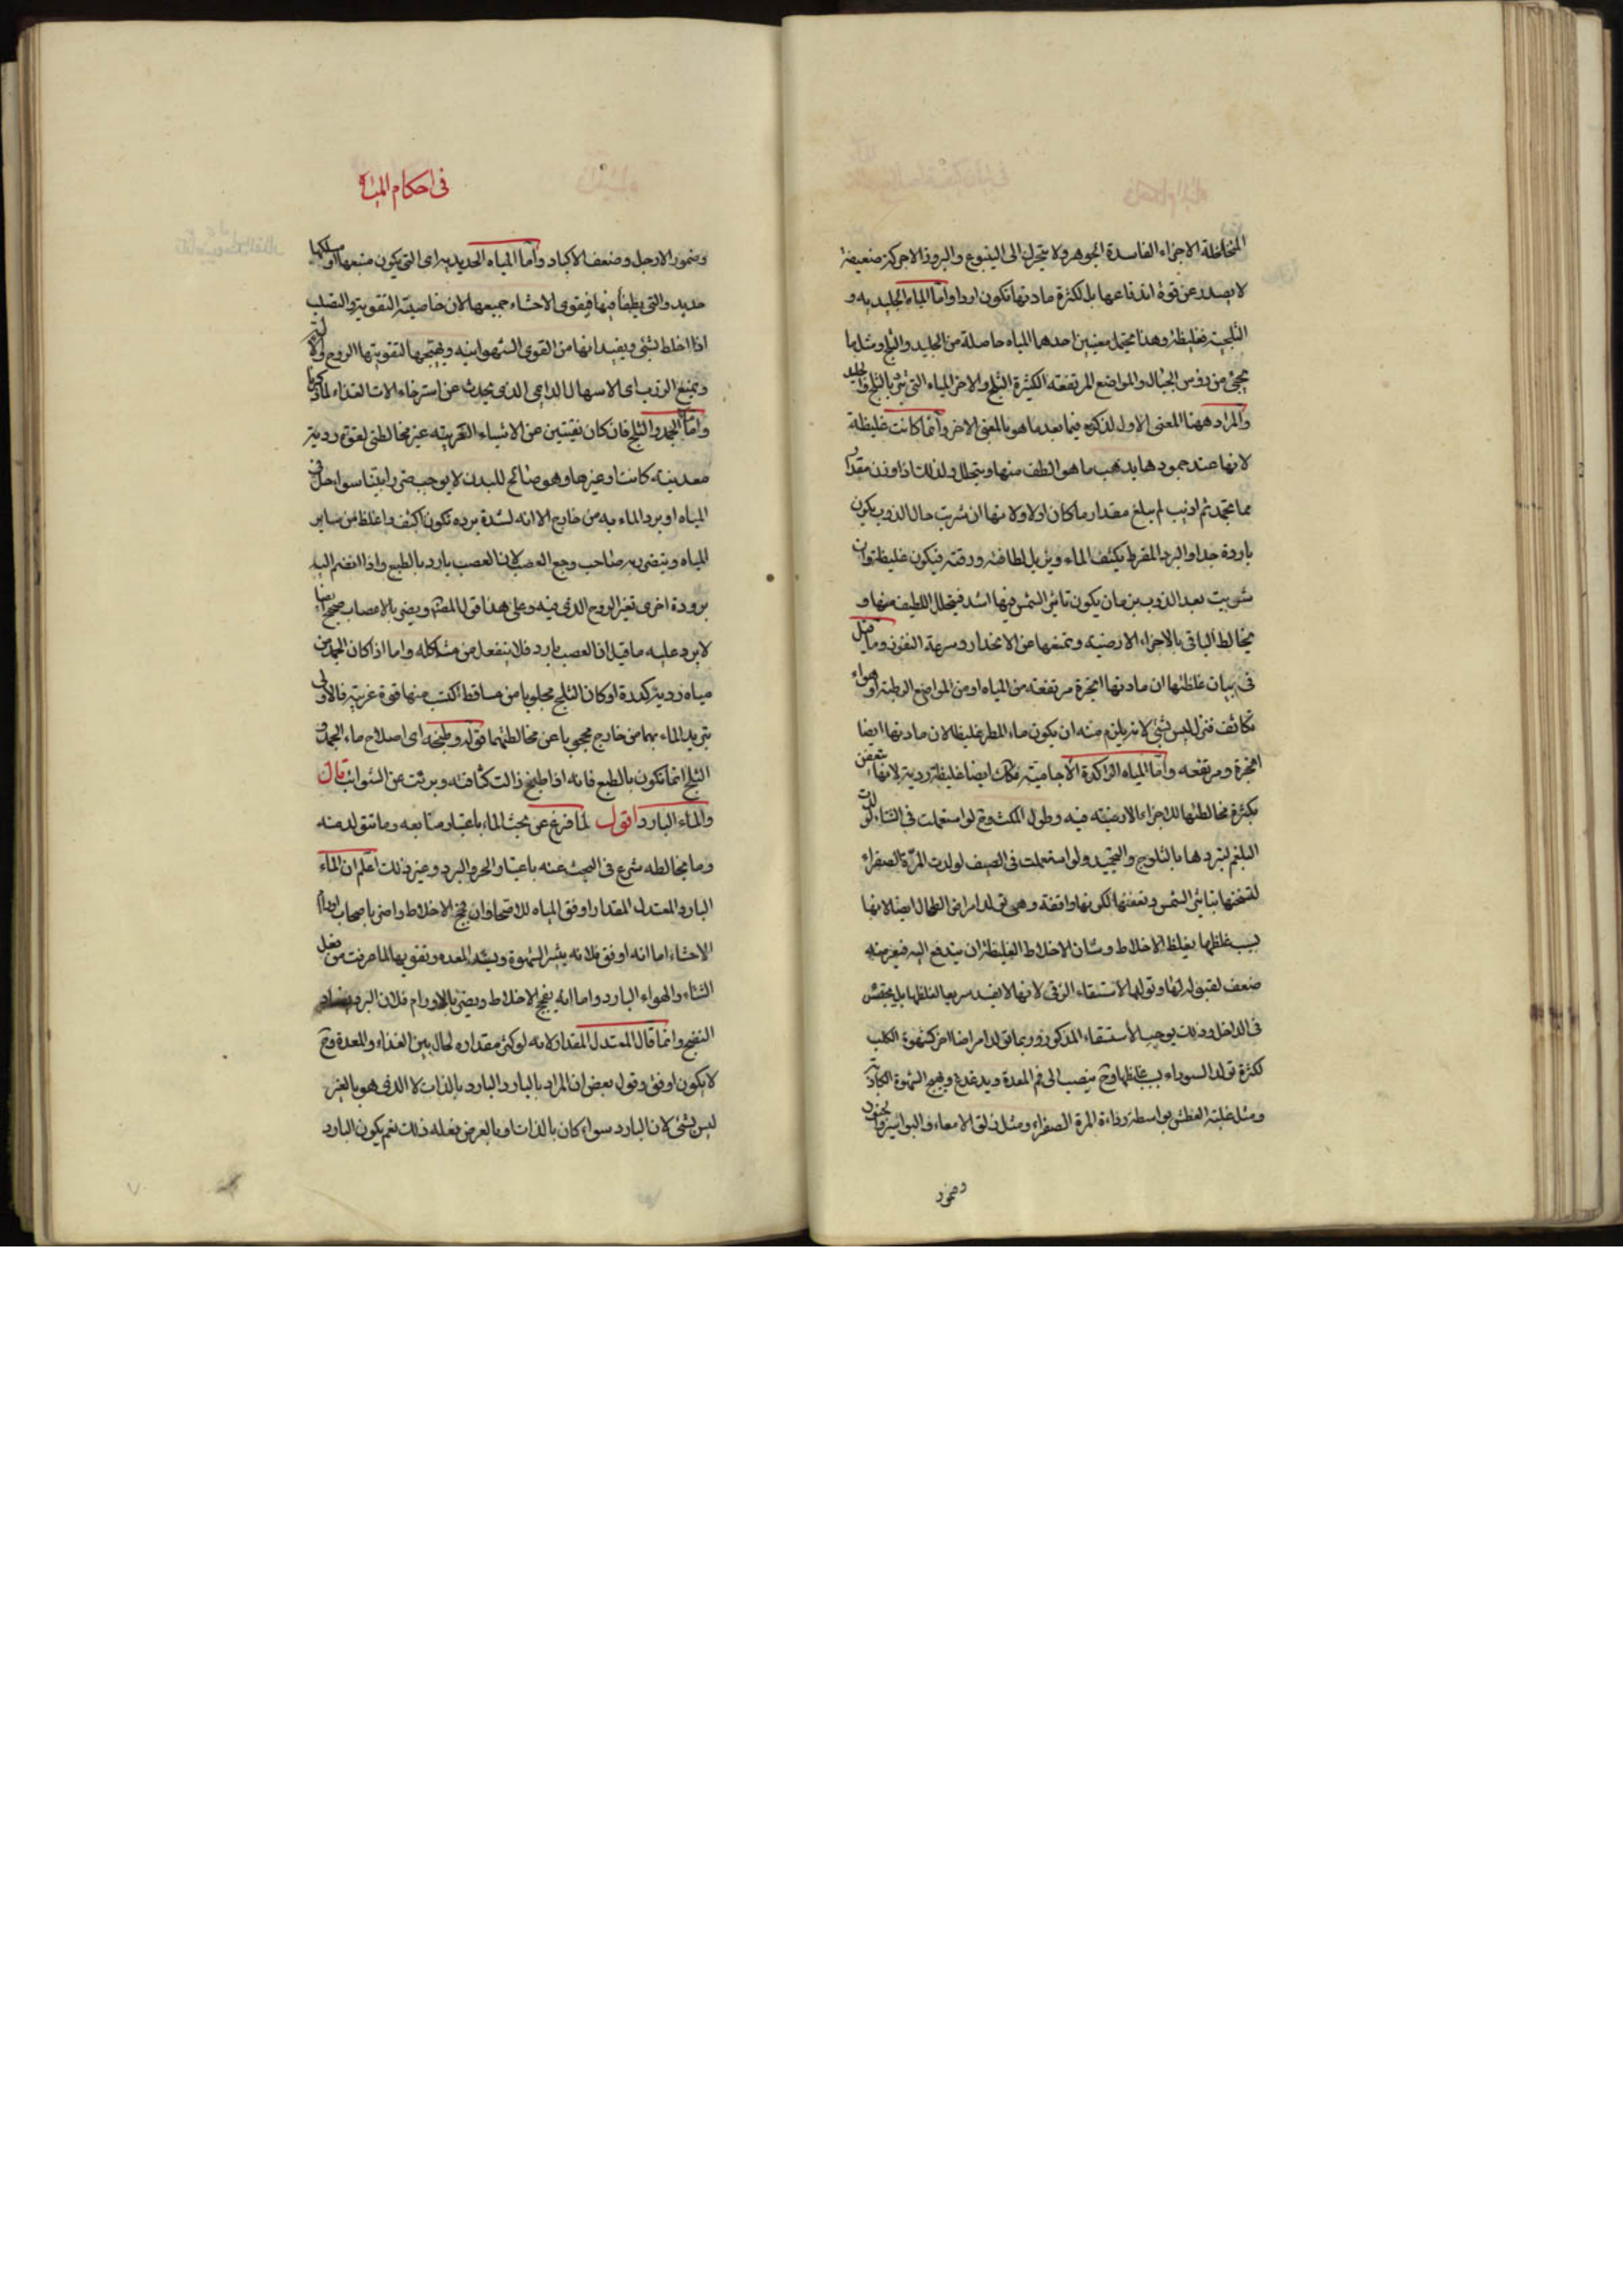 المتخلخلة الاجزاء الفاسدة الجوهر ولا يتحرك الى الينبوع والبروز الا حركة ضعيفة
لا يصدر عن قوة اندفاعها بل لكثرة مادتها تكون اردا واما المياه الجليديه و
الثلجية فغليظة وهذا يحتمل معنيين احدهما المياه حاصلة من الجليد والثلج ومثل ما
يجئ من رؤس الجبال والمواضع المرتفعة الكثيرة الثلج والاخر المياه التى تبرد بالثلج والجليد
والمراد ههنا المعنى الاول لذكره فيما بعد ما هو بالمعنى الاخر وانما كانت غليظة
لانها عند جمودها يذهب ما هو الطف منها ويتحلل ولذلك اذا وزن مقدار
مما يتجمد ثم اذيب لم يبلغ مقدار ما كان اولا ولانها ان شربت حال الذوب يكون
باردة جدا والبرد المفرط يكثف الماء ويزيل لطافته ورقته فيكون غليظة وان
شربت بعد الذوب بزمان يكون تاثير الشمس فيها اشد فيتحلل اللطيف منها و
يخالط الباقى بالاجزاء الارضية ويمنعها عن الانحدار وسرعة النفوذ وما قيل
فى بيان غلظتها ان مادتها ابخرة مرتفعة من المياه او من المواضع الرطبة او هواء
تكاثف فنزل ليس بشئ لانه يلزم منه ان يكون ماء المطر غليظا لان مادتها ايضا
ابخرة ومرتفعه واما المياه الراكدة الاجامية فكانت ايضا غليظة ردية لانها تتعفن
بكثرة مخالطتها للاجزاء الارضية فيه وطول المكث وح لو استعملت فى الشتاء لولدت
البلغم لتبردها بالثلوج والتجميد ولو استعملت فى الصيف لولدت المرة الصفراء
لتسخنها بتاثير الشمس وتعفنها لكونها واقفة وهى تولد امراض الطحال ايضا لانها
بسبب غلظها يغلظ الاخلاط وشان الاخلاط الغليظة ان يندفع اليه فيعرض له
ضعف لقبوله لها وتولد الاستسقاء الزقى لانها لا تنفذ سريعا لغلظها بل يحتقن
فى الداخل وذلك يوجب الاستسقاء المذكور وربما تولد امراضا اخر كشهوة الكلب
لكثرة تولد السوداء بسبب غلظها وح ينصب الى فم المعدة ويدغدغ ويهيج الشهوة الكاذبة
ومثل غلبة العطش بواسطة رداءة المرة الصفراء ومثل زلق الامعاء والبواسير والجنون
وضمور
فى احكام المياه
وضمور الارجل وضعف الاكباد واما المياه الحديدية اى التى يكون منبعها او مسلكها
حديد والتى يطفأ فيها فيقوى الاحشاء جميعها لان خاصيته التقوية والتصلب
اذا اختلط بشئ ويفيد انها من القوى الشهوانية ويهيجها لتقويتها الروح
ويمنع الذرب اى الاسهال الدايمى الذى يحدث عن استرخاء الات الغذاء لما ذكرنا
واما الجمد والثلج فان كان نقيتين عن الاشياء الغريبة غير مخالطتى لقوة ردية
معدنية كانت او غيرها وهو صالح للبدن لا يوجب ضررا بينا سواء حل فى
المياه او برد الماء به من خارج الا انه لشدة برده تكون اكثف واغلظ من ساير
المياه ويتضرر به صاحب وجع العصب لان العصب بارد بالطبع واذا انضم اليه
برودة اخرى تغير الروح الذى فيه وعلى هذا قول المصنف ويضر بالاعصاب صحيح ايضا
لا يرد عليه ما قيل ان العصب بارد فلا ينفعل من مشاكله واما اذا كان الجمد من
مياه ردية كدرة او كان الثلج مجلوبا من مساقط اكتسب منها قوة غريبة فالاولى
تبريد الماء بهما من خارج محجوبا عن مخالطتهما قوله وطبخه اى اصلاح ماء الجمد و
الثلج انما تكون بالطبخ فانه اذا طبخ زالت كثافته وبرئت عن الشوائب قال
والماء البارد اقول لما فرغ عن بحث الماء باعتبار منابعه وما يتولد منه
وما يخالطه شرع فى البحث عنه باعتبار الحر والبرد وغير ذلك اعلم ان الماء
البارد المعتدل المقدار اوفق المياه للاصحاء وان فجج الاخلاط واضر باصحاب اورام
الاحشاء اما انه اوفق فلانه يثير الشهوة ويشد المعده وتقويها لما عرفت من فعل
الشتاء والهواء البارد واما انه يفجج الاخلاط ويضر بالاورام فلان البرد
النضج وانما قال المعتدل المقدار لانه لو كثر مقداره لحال بين الغذاء والمعدة وح
لا يكون اوفق وقول بعض ان المراد بالبارد البارد بالذات لا الذى هو بالغير
ليس بشئ لان البارد سواء كان بالذات او بالعرض يفعله ذلك نعم يكون البارد